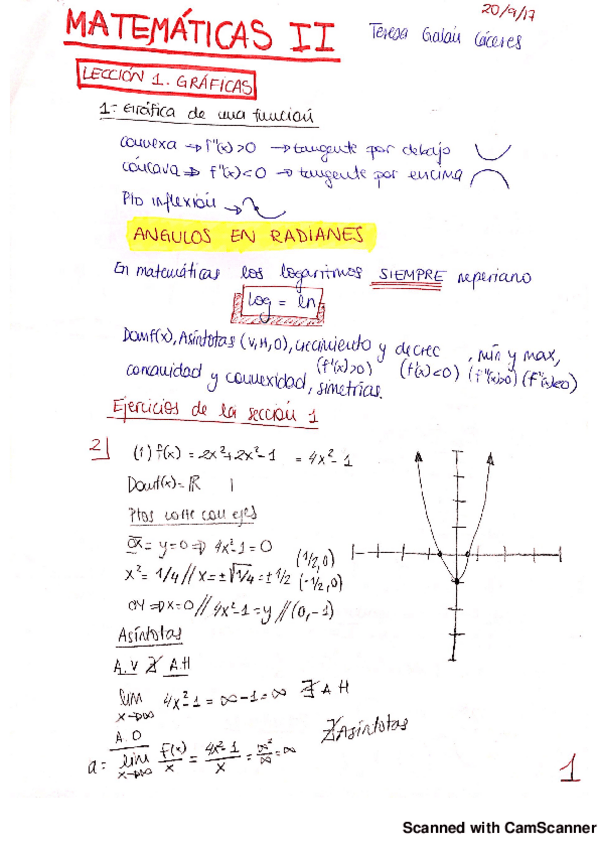 20/9/17
MATEMÁTICAS II Teresa Galán Cáceres
LECCIÓN 1. GRÁFICAS
1: Gráfica de una función
convexa → f''(x)>0 → tangente por debajo
cóncava → f''(x)<0 → tangente por encima
Pto inflexión →
ANGULOS EN RADIANES
En matemáticas los logaritmos SIEMPRE neperiano
log = ln
Domf(x), Asíntotas (V,H,O), crecimiento y decrec, mín y max,
(f'(x)>0) (f'(x)<0) (f''(x)>0) (f''(x)<0)
concavidad y convexidad, simetrías.
Ejercicios de la sección 1
2) (1) f(x) = 2x²+2x²-1 = 4x²-1
Domf(x)= ℝ
Ptos corte con ejes
OX = y=0 ⇒ 4x²-1=0
x² = 1/4 // x=±√1/4 = ±1/2 (1/2,0) (-1/2,0)
OY ⇒ x=0 // 4x²-1=y // (0,-1)
Asíntotas
A.V ∄ A.H
lim x→∞ 4x²-1 = ∞-1=∞ ∄ A H
A.O
a = lim x→∞ f(x)/x = 4x²-1/x = ∞²/∞ = ∞
∄ Asíntotas
1
Scanned with CamScanner